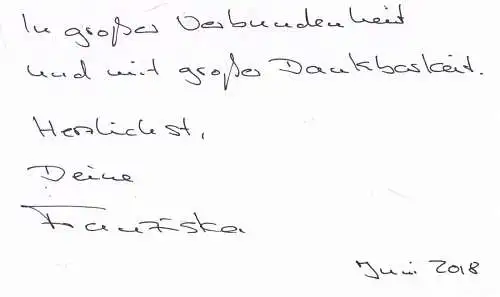 In großer Verbundenheit
und mit großer Dankbarkeit.
Herzlichst,
Deine
Franziska
Juni 2018